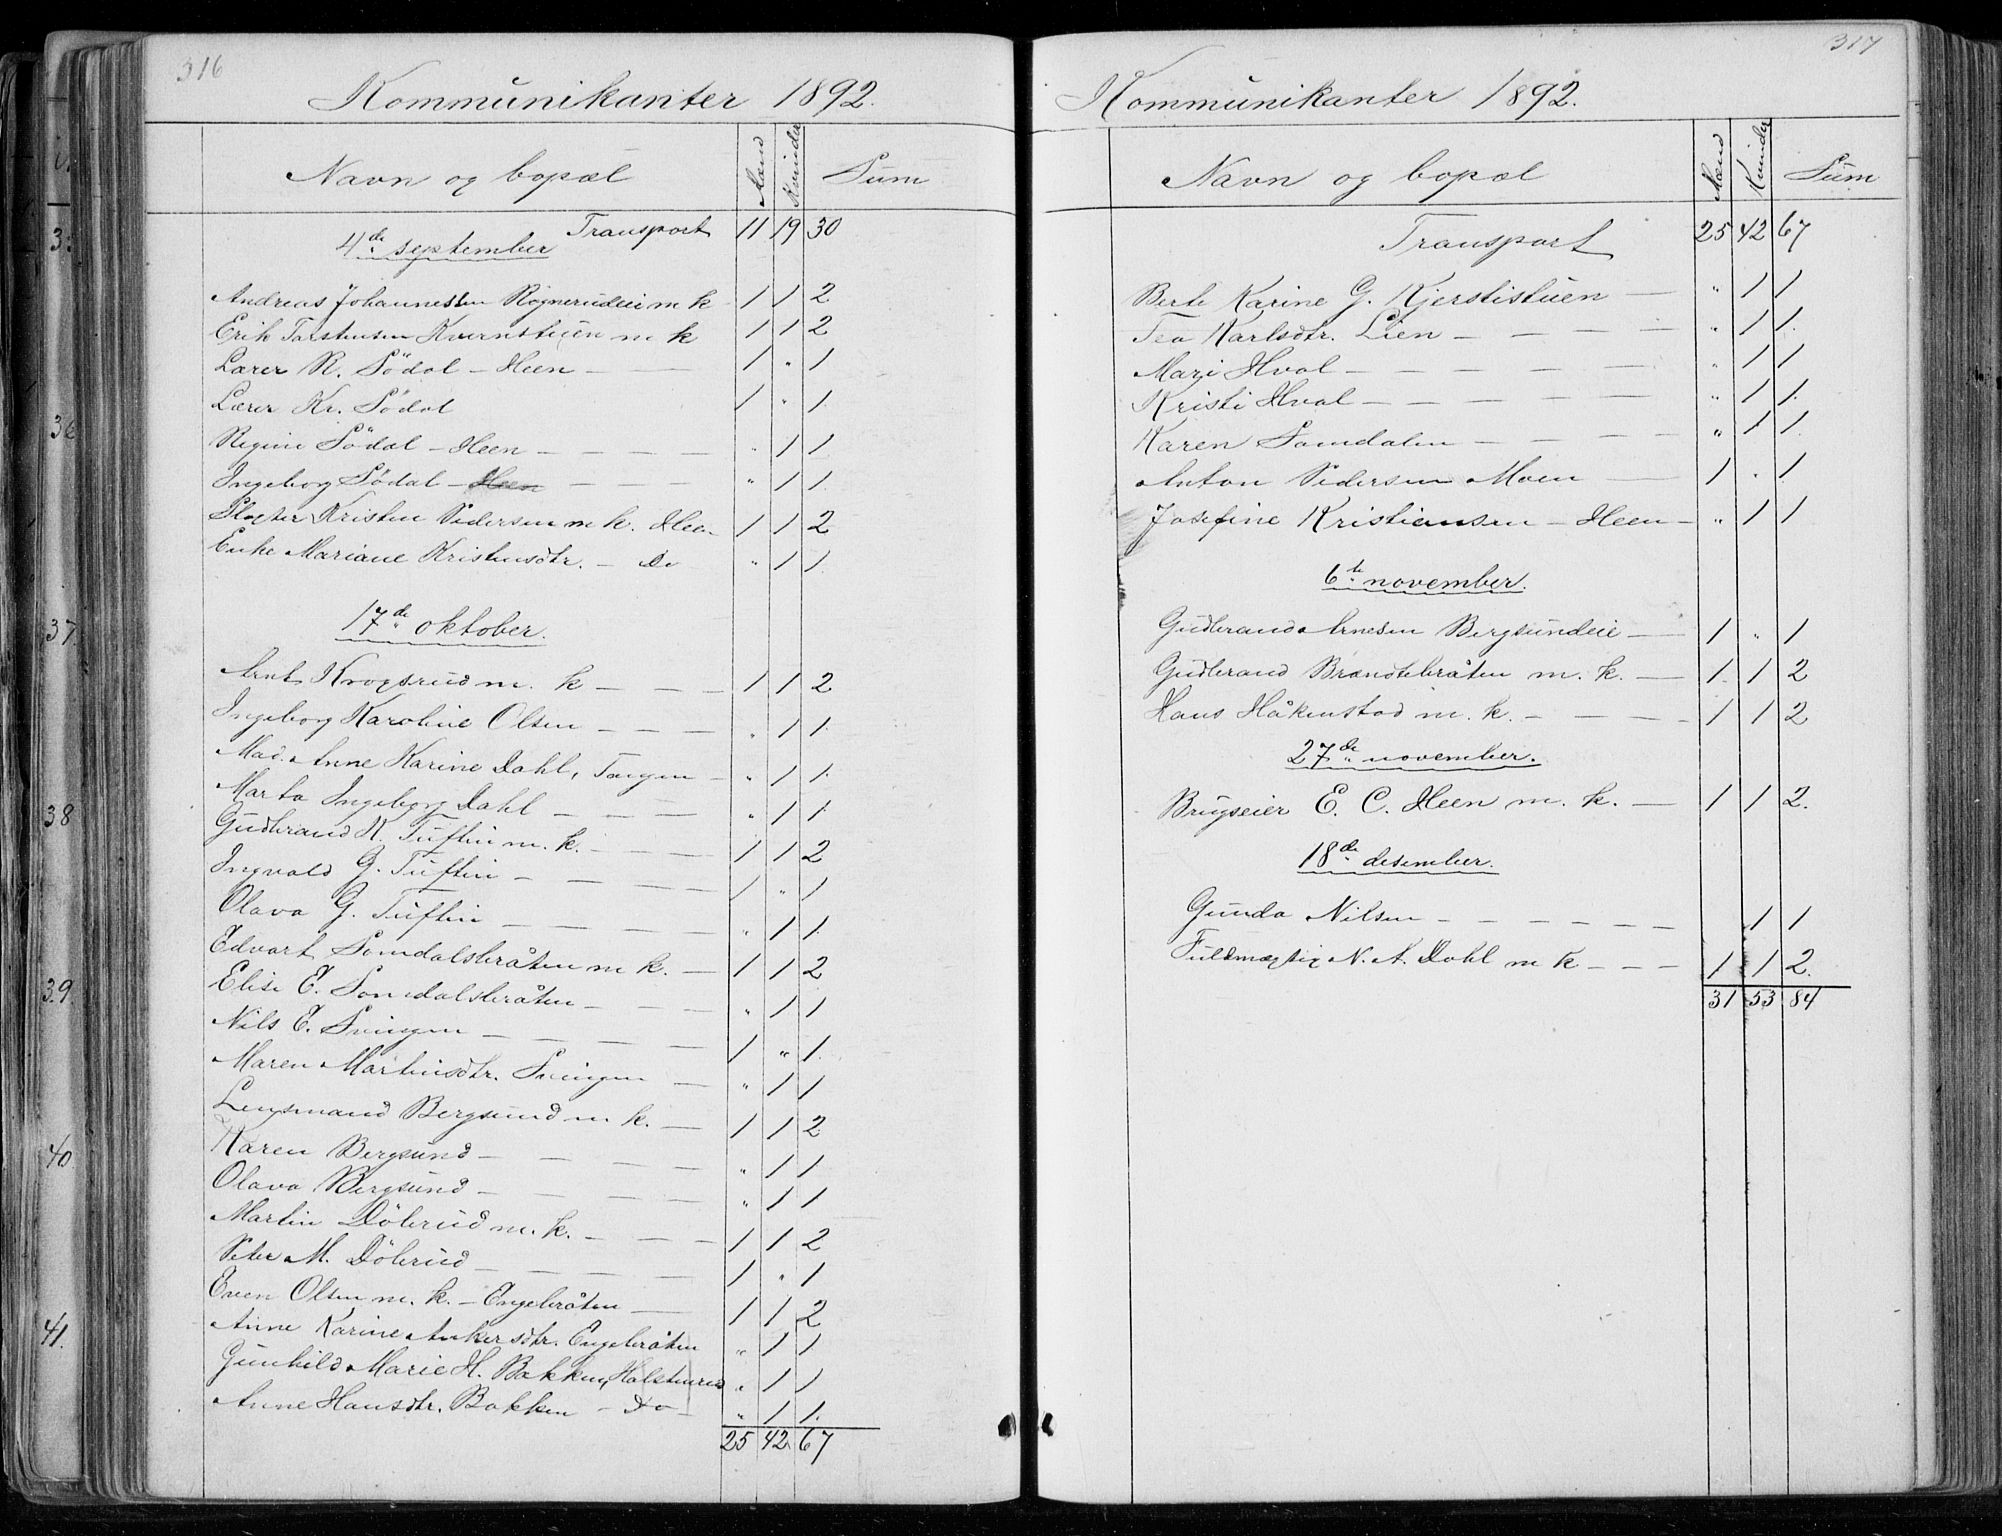 316
Kommunikanter 1892.
Navn og bopæl Mænd Kvinder Sum
Transport 11 19 30
4de september
Andreas Johannessen Rognerudeie m k 1 1 2
Erik Torstensen Kvernstuen m k 1 1 2
Lærer R. Södal - Heen - 1 " 1
Lærer Kr. Södal 1 " 1.
Regine Södal - Heen - - - - " 1 1
Ingeborg Södal - Heen - - - " 1 1.
Slagter Kristen Pedersen m k. Heen 1 1 2
Enke Mariane Kristensdtr. - Do " 1 1.
17de oktober.
Arnt Krogsrud m. k - - - 1 1 2
Ingeborg Karoline Olsen - - - " 1 1.
Mad. Anne Karine Dahl, Tangen - " 1 1.
Marta Ingeborg Dahl - - - " 1 1.
Gudbrand K. Tuftin m. k. - - - 1 1 2
Ingvald G. Tuftin - - - - 1 " 1
Olava G. Tuftin - - - - - " 1 1.
Edvart Somdalsbråten m k. - 1 1 2
Elise E. Somdalsbråten - - - " 1 1
Nils E. Svingen - - - - - 1 " 1.
Maren Martinsdtr. Svingen - " 1 1
Lensmand Bergsund m k. - 1 1 2
Karen Bergsund - - - - " 1 1
Olava Bergsund - - - - " 1 1
Martin Döbrud m. k. - - - 1 1 2
Peter M. Döbrud - - - - 1 " 1
Even Olsen m. k. - Engebråten - 1 1 2
Anne Karine Ankersdtr. Engebråten " 1 1
Gunhild Marie H. Bakken, Halstenrud " 1 1
Anne Hansdtr. Bakken - Do - " 1 1.
25 42 67
317
Kommunikanter 1892.
Navn og bopæl Mænd Kvinder Sum
Transport 25 42 67
Berte Karine G. Kjerstistuen - " 1 1
Tea Karlsdtr. Lien - - - - " 1 1.
Mari Hval - - - - - " 1 1
Kristi Hval - - - - - " 1 1.
Karen Somdalen - - - - " 1 1.
Anton Pedersen Moen - 1 " 1
Josefine Kristiansen - Heen - " 1 1
6te november.
Gudbrand Arnesen Bergsundeie - 1 " 1
Gudbrand Brændtebråten m. k. - 1 1 2
Hans Håkenstad m. k. - - - - 1 1 2
27de november.
Brugseier E. C. Heen m. k. - 1 1 2.
18de desember.
Gunda Nilsen - - - - - - 1 1
Fuldmægtig N. A. Dahl m k - - - 1 1 2.
31 53 84
36
37.
38
39.
40
41.